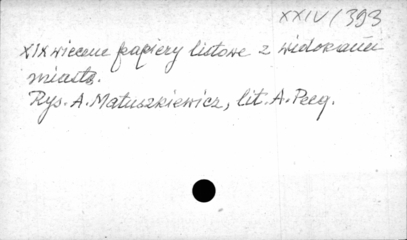 XXIV/393
XIX wieczne papiery listowe z widokami
miasta.
Rys. A. Matuszkiewicz, lit. A. Pecq.